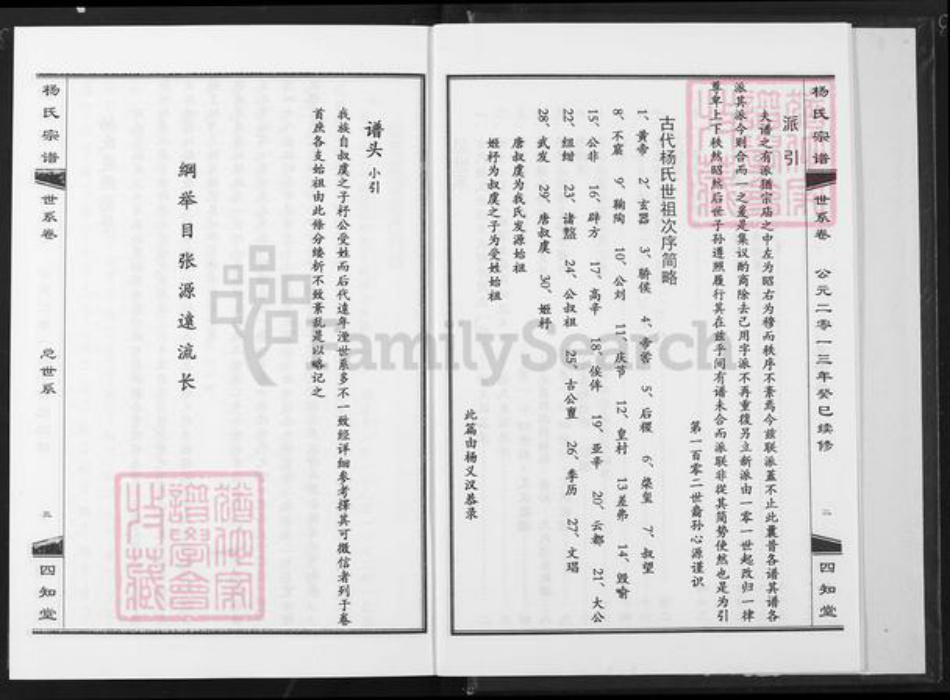 杨氏宗谱
世系卷
公元二零一三年癸巳续修
二
四知堂
派引
夫谱之有派猶宗庙之中左为昭右为穆而秩序不紊焉今兹联派盖不止此曩昔各谱其谱各
派其派今则合而一之爰是集议酌商除去已用字派不再重復另立新派由一零一世起改归一律
尊卑上下秩然昭然后世子孙遵照履行其在兹乎间有谱未合而派联非從其简势使然也是为引
第一百零二世裔孙心源谨识
古代杨氏世祖次序简略
1、黄帝 2、玄嚣 3、骄侯 4、帝喾 5、后稷 6、 7、叔望
8、不窋 9、鞠陶 10、公刘 11、庆节 12、皇村 13差弗 14、毁喻
15、公非 16、辟方 17、高辛 18、侯侔 19、亚辛 20、云都 21、大公
22、组绀 23、诸盩 24、公叔祖 25、古公亶 26、季历 27、文瑒
28、武发 29、唐叔虞 30、姬杼
唐叔虞为我氏发源始祖
姬杼为叔虞之子为受姓始祖
此篇由杨义汉恭录
谱头 小引
我族自叔虞之子杼公受姓而后代遠年湮世系多不一致经详细参考择其可徵信者列于卷
首庶各支始祖由此條分缕析不致紊乱是以略记之
綱举目张源遠流长
杨氏宗谱
世系卷
总世系
三
四知堂
FamilySearch